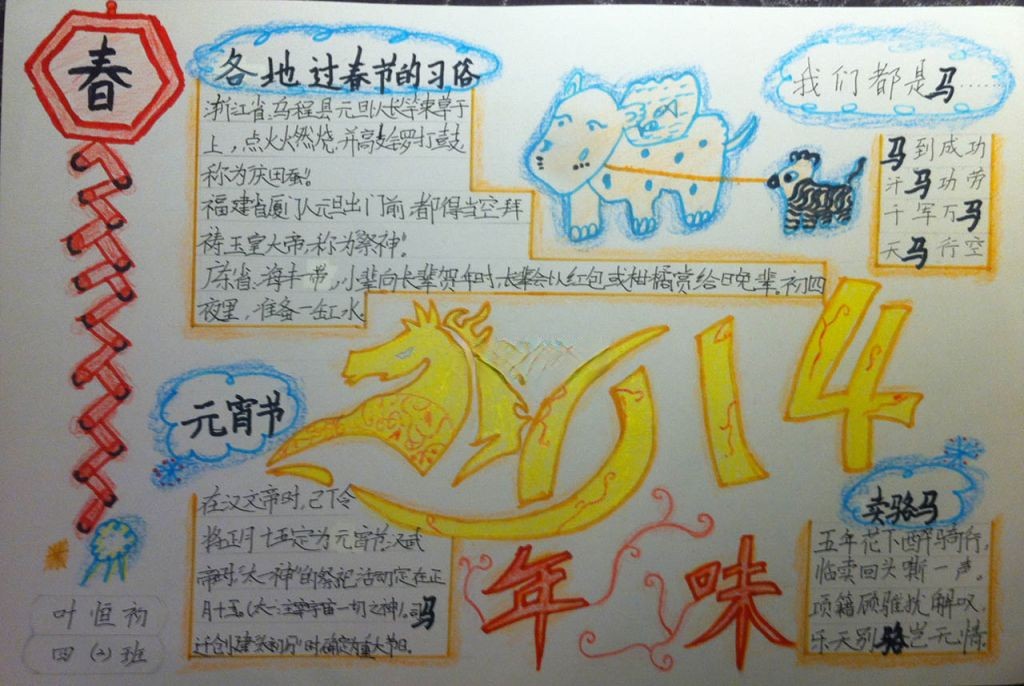 春
各地过春节的习俗
浙江省:乌程县元旦以长竿束草于
上，点火燃烧，并高敲锣打鼓，
称为庆田蚕!
福建省厦门人元旦出门前都得当空拜
祷玉皇大帝,称为祭神!
广东省:海丰一带,小辈向长辈贺年时,长辈会以红包或柑橘赏给晚辈。初四
夜里，准备一缸水。
我们都是马······
马到成功
汗马功劳
千军万马
天马行空
2014
元宵节
在汉文帝时,已下令
将正月十五定为元宵节。汉武
帝时"太一神"的祭祀活动定在正
月十五。(太一:主宰宇宙一切之神)。司马
迁创建"太初历"时确定为重大节日。
年味
卖骆马
五年花下醉骑行,
临卖回头嘶一声。
项籍顾骓犹解叹,
乐天别骆岂无情。
叶恒初
四(2)班